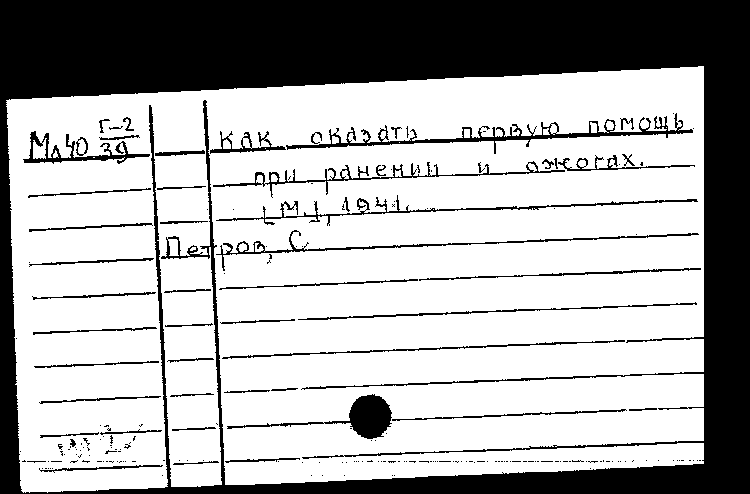 Мл40 Г-2/39 Как оказать первую помощь
при ранении и ожогах.
[М.], 1941.
Петров, С